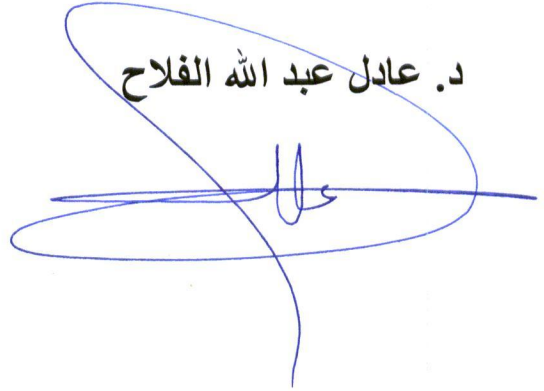 د. عادل عبد الله الفلاح